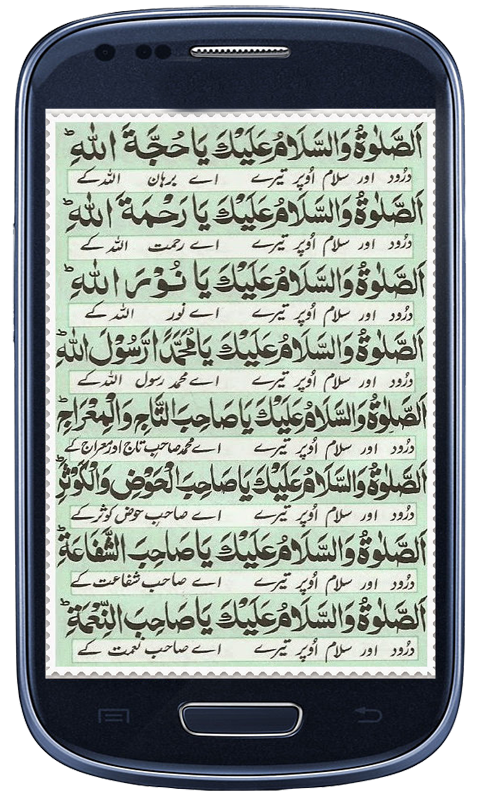 اَلصَّلٰوةُ وَالسَّلَامُ عَلَيْكَ يَا حُجَّةَ اللهِ ؕ
درُود اور سلام اُوپر تیرے اے برہان اللہ کے
اَلصَّلٰوةُ وَالسَّلَامُ عَلَيْكَ يَا رَحْمَةَ اللهِ ؕ
درُود اور سلام اُوپر تیرے اے رحمت اللہ کے
اَلصَّلٰوةُ وَالسَّلَامُ عَلَيْكَ يَا نُوْرَ اللهِ ؕ
درُود اور سلام اُوپر تیرے اے نور اللہ کے
اَلصَّلٰوةُ وَالسَّلَامُ عَلَيْكَ يَا مُحَمَّدًا رَّسُوْلَ اللهِ ؕ
درُود اور سلام اُوپر تیرے اے محمد رسول اللہ کے
اَلصَّلٰوةُ وَالسَّلَامُ عَلَيْكَ يَا صَاحِبَ التَّاجِ وَالْمِعْرَاجِ ؕ
درُود اور سلام اُوپر تیرے اے محمد صاحب تاج اور معراج کے
اَلصَّلٰوةُ وَالسَّلَامُ عَلَيْكَ يَا صَاحِبَ الْحَوْضِ وَالْكَوْثَرِ ؕ
درُود اور سلام اُوپر تیرے اے صاحب حوض کوثر کے
اَلصَّلٰوةُ وَالسَّلَامُ عَلَيْكَ يَا صَاحِبَ الشَّفَاعَةِ ؕ
درُود اور سلام اُوپر تیرے اے صاحب شفاعت کے
اَلصَّلٰوةُ وَالسَّلَامُ عَلَيْكَ يَا صَاحِبَ النِّعْمَةِ ؕ
درُود اور سلام اُوپر تیرے اے صاحب نعمت کے